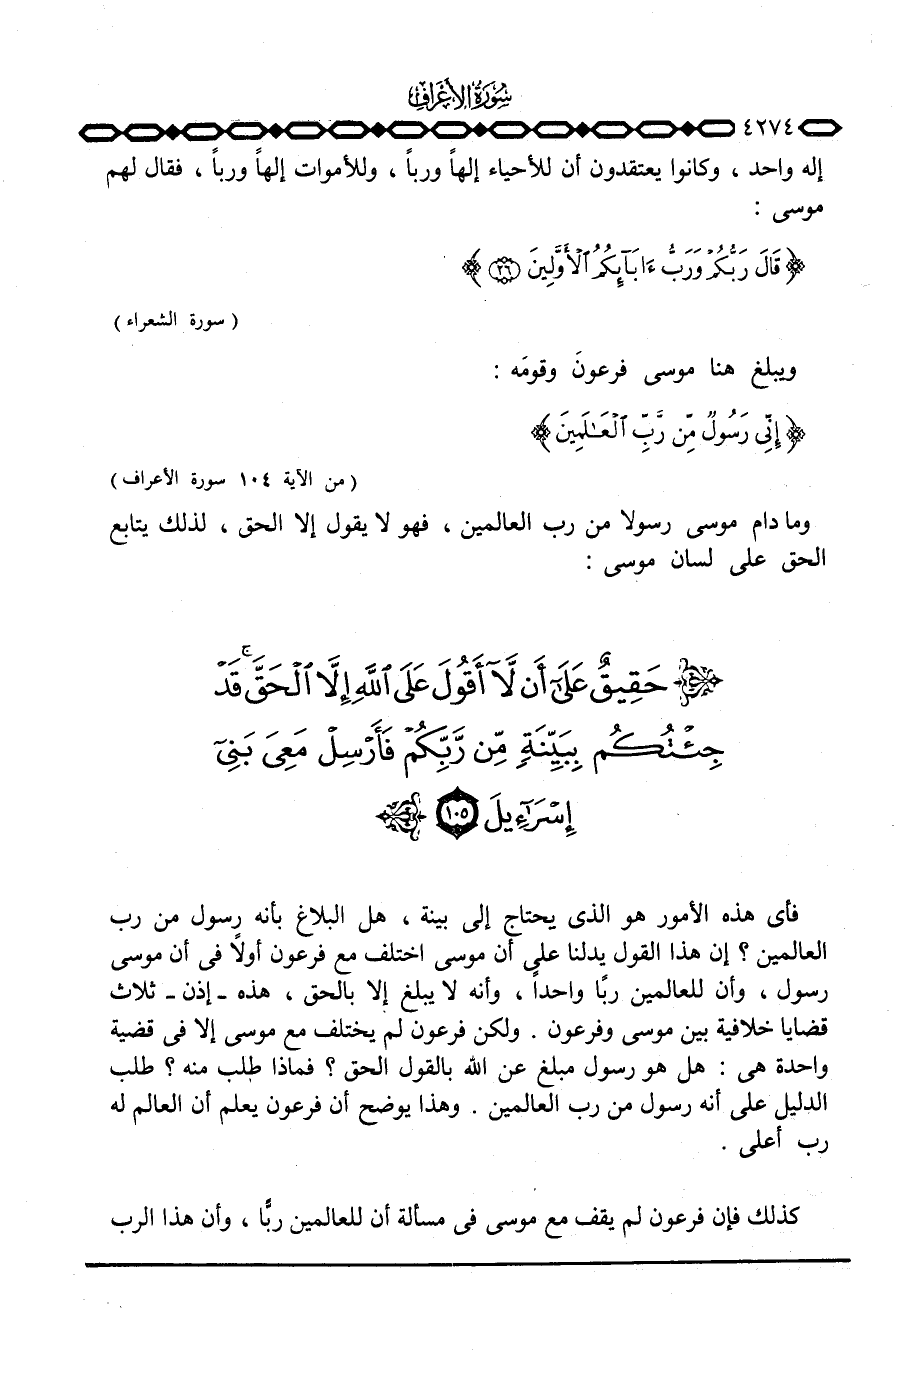 سُورَةُ الأَعْرَافِ
٤٢٧٤
إله واحد ، وكانوا يعتقدون أن للأحياء إلهاً ورباً ، وللأموات إلهاً ورباً ، فقال لهم
موسى :
﴿ قَالَ رَبُّكُمْ وَرَبُّ ءَابَآئِكُمُ ٱلْأَوَّلِينَ ٢٦ ﴾
( سورة الشعراء )
ويبلغ هنا موسى فرعونَ وقومَه :
﴿ إِنِّى رَسُولٌ مِّن رَّبِّ ٱلْعَـٰلَمِينَ ﴾
( من الآية ١٠٤ سورة الأعراف )
وما دام موسى رسولا من رب العالمين ، فهو لا يقول إلا الحق ، لذلك يتابع
الحق على لسان موسى :
﴿ حَقِيقٌ عَلَىٰٓ أَن لَّآ أَقُولَ عَلَى ٱللَّهِ إِلَّا ٱلْحَقَّ ۚ قَدْ
جِئْتُكُم بِبَيِّنَةٍ مِّن رَّبِّكُمْ فَأَرْسِلْ مَعِىَ بَنِىٓ
إِسْرَٰٓءِيلَ ١٠٥ ﴾
فأى هذه الأمور هو الذى يحتاج إلى بينة ، هل البلاغ بأنه رسول من رب
العالمين ؟ إن هذا القول يدلنا على أن موسى اختلف مع فرعون أولاً فى أن موسى
رسول ، وأن للعالمين ربًا واحداً ، وأنه لا يبلغ إلا بالحق ، هذه ـ إذن ـ ثلاث
قضايا خلافية بين موسى وفرعون . ولكن فرعون لم يختلف مع موسى إلا فى قضية
واحدة هى : هل هو رسول مبلغ عن الله بالقول الحق ؟ فماذا طلب منه ؟ طلب
الدليل على أنه رسول من رب العالمين . وهذا يوضح أن فرعون يعلم أن العالم له
رب أعلى .
كذلك فإن فرعون لم يقف مع موسى فى مسألة أن للعالمين ربًّا ، وأن هذا الرب